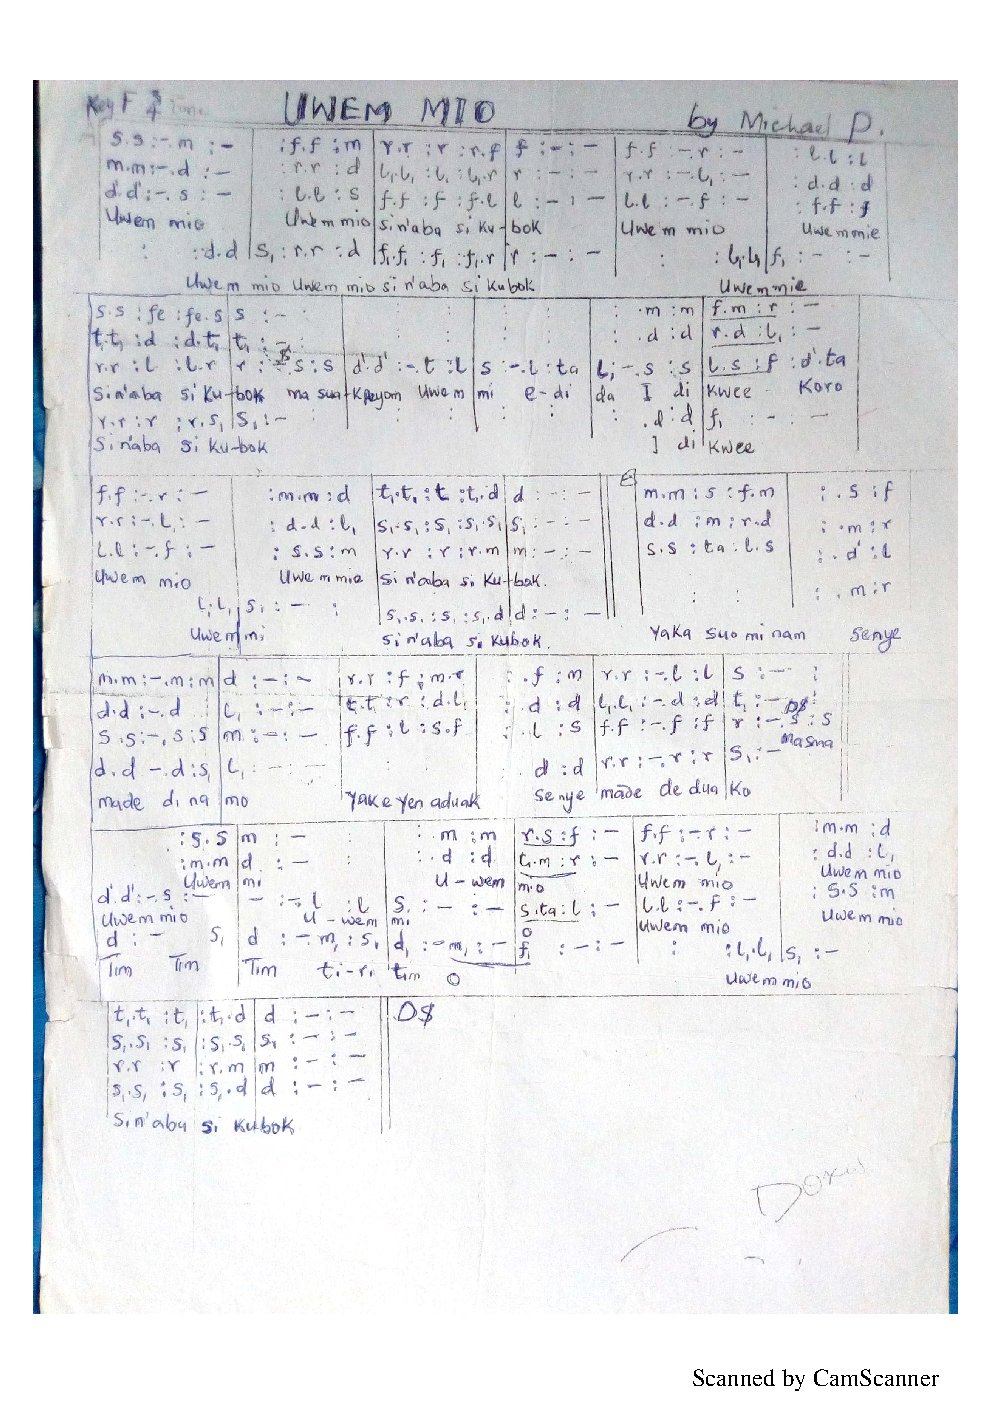 Key F 3/4 Time UWEM MIO by Michael P.
s.s :-.m :- | :f.f :m | r.r :r :r.f | f :- :- | f.f :-.r :- | :l.l :l
m.m :-.d :- | :r.r :d | l₁.l₁ :l₁ :l₁.r | r :- :- | r.r :-.l₁ :- | :d.d :d
d'.d' :-.s :- | :l.l :s | f.f :f :f.l | l :- :- | l.l :-.f :- | :f.f :f
Uwem mio Uwem mio si n'aba si Ku-bok Uwem mio Uwem mie
: :d.d | s₁ :r.r :d | f₁.f₁ :f₁ :f₁.r | r :- :- | : :l₁.l₁ | f₁ :- :-
Uwem mio Uwem mio si n'aba si Kubok Uwem mie
s.s :fe :fe.s | s :- : | : : | : : | : .m :m | f.m :r :-
t₁.t₁ :d :d.t₁ | t₁ :- $ : : | : : | : .d :d | r.d :l₁ :-
r.r :l :l.r | r :-.s :s | d'.d' :-.t :l | s :-.l :ta | l :-.s :s | l.s :f :d'.ta
Si n'aba si Ku-bok ma sua-K Uwem mi e-di da I di Kwee Koro
r.r :r :r.s₁ | s₁ :- : | : : | : : | .d :d | f₁ :- :-
Si n'aba si Ku-bok I di Kwee
f.f :-.r :- | :m.m :d | t₁.t₁ :t₁ :t₁.d | d :- :- || m.m :s :f.m | : .s :f
r.r :-.l₁ :- | :d.d :l₁ | s₁.s₁ :s₁ :s₁.s₁ | s₁ :- :- || d.d :m :r.d | : .m :r
l.l :-.f :- | :s.s :m | r.r :r :r.m | m :- :- || s.s :ta :l.s | : .d' :l
Uwem mio Uwem mie Si n'aba si Ku-bok. : : | : .m :r
l₁.l₁ | s₁ :- : | s₁.s₁ :s₁ :s₁.d | d :- :-
Uwem mi Si n'aba si Kubok. Yaka suo mi nam senye
m.m :-.m :m | d :- :- | r.r :f :m.r | : .f :m | r.r :-.l :l | s :- :
d.d :-.d | l₁ :- :- | t₁.t₁ :r :d.l₁ | : .d :d | l₁.l₁ :-.d :d | t₁ :- : D$
s.s :-.s :s | m :- :- | f.f :l :s.f | : .l :s | f.f :-.f :f | r :-.s :s
d.d -.d :s₁ | l₁ :- - - | : : | d :d | r.r :-.r :r | s₁ :- Ma sua
made di na mo Yak e yen aduak senye made de dua Ko
:s.s | m :- : | : .m :m | r.s :f :- | f.f :-r :- | :m.m :d
:m.m | d :- : | : .d :d | t₁.m :r :- | r.r :-.l₁ :- | :d.d :l₁
Uwem mi U-wem mio Uwem mio Uwem mio
d'.d' :-.s :- | - :-.l :l | s :- :- | s.ta :l :- | l.l :-.f :- | :s.s :m
Uwem mio U-wem mi O Uwem mio Uwem mio
d :- s₁ | d :-m₁ :s₁ | d₁ :-m₁ :- | f₁ :- :- | : :l₁.l₁ | s₁ :-
Tim Tim Tim ti-ri tim O Uwem mio
t₁.t₁ :t₁ :t₁.d | d :- :- || D$
s₁.s₁ :s₁ :s₁.s₁ | s₁ :- :-
r.r :r :r.m | m :- :-
s₁.s₁ :s₁ :s₁.d | d :- :-
Si n'aba si Kubok
Scanned by CamScanner